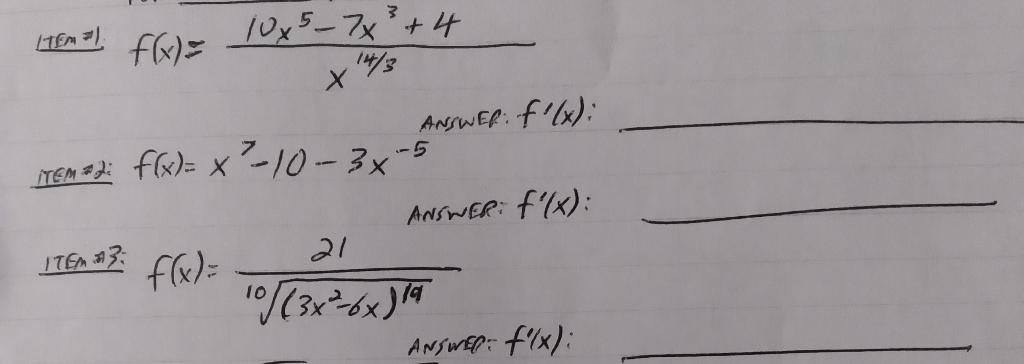 ITEM #1. f(x) = 10x^5 - 7x^3 + 4 / x^14/3
ANSWER: f'(x):
ITEM #2: f(x) = x^7 - 10 - 3x^-5
ANSWER: f'(x):
ITEM #3: f(x) = 21 / 10√(3x^2 - 6x)^19
ANSWER: f'(x):